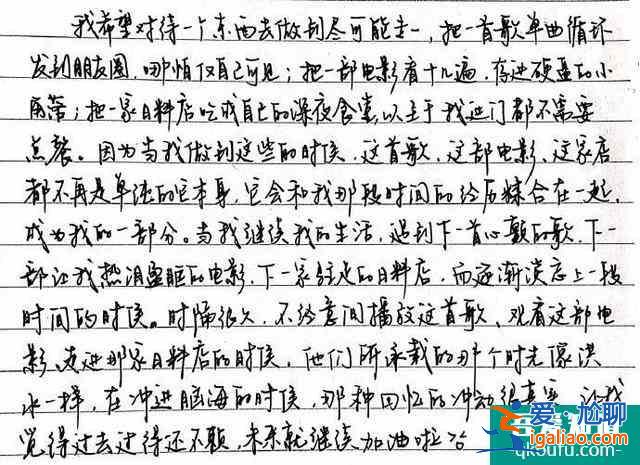 我希望对待一个东西去做到尽可能专一，把一首歌单曲循环
发到朋友圈，哪怕仅自己可见；把一部电影看十几遍，存进硬盘的小
角落；把一家日料店吃成自己的深夜食堂，以至于我进门都不需要
点餐。因为当我做到这些的时候，这首歌、这部电影、这家店
都不再是单纯的它本身，它会和我那段时间的经历糅合在一起，
成为我的一部分。当我继续我的生活，遇到下一首心颤的歌，下一
部让我热泪盈眶的电影，下一家驻足的日料店，而逐渐淡忘上一段
时间的时候。时隔很久，不经意间播放这首歌、观看这部电
影、走进那家日料店的时候，他们所承载的那个时光像洪
水一样，在冲进脑海的时候，那种回忆的冲动很真实，让我
觉得过去过得还不赖，未来就继续加油啦
爱尬聊
jgaliao.com
qkoufu.com